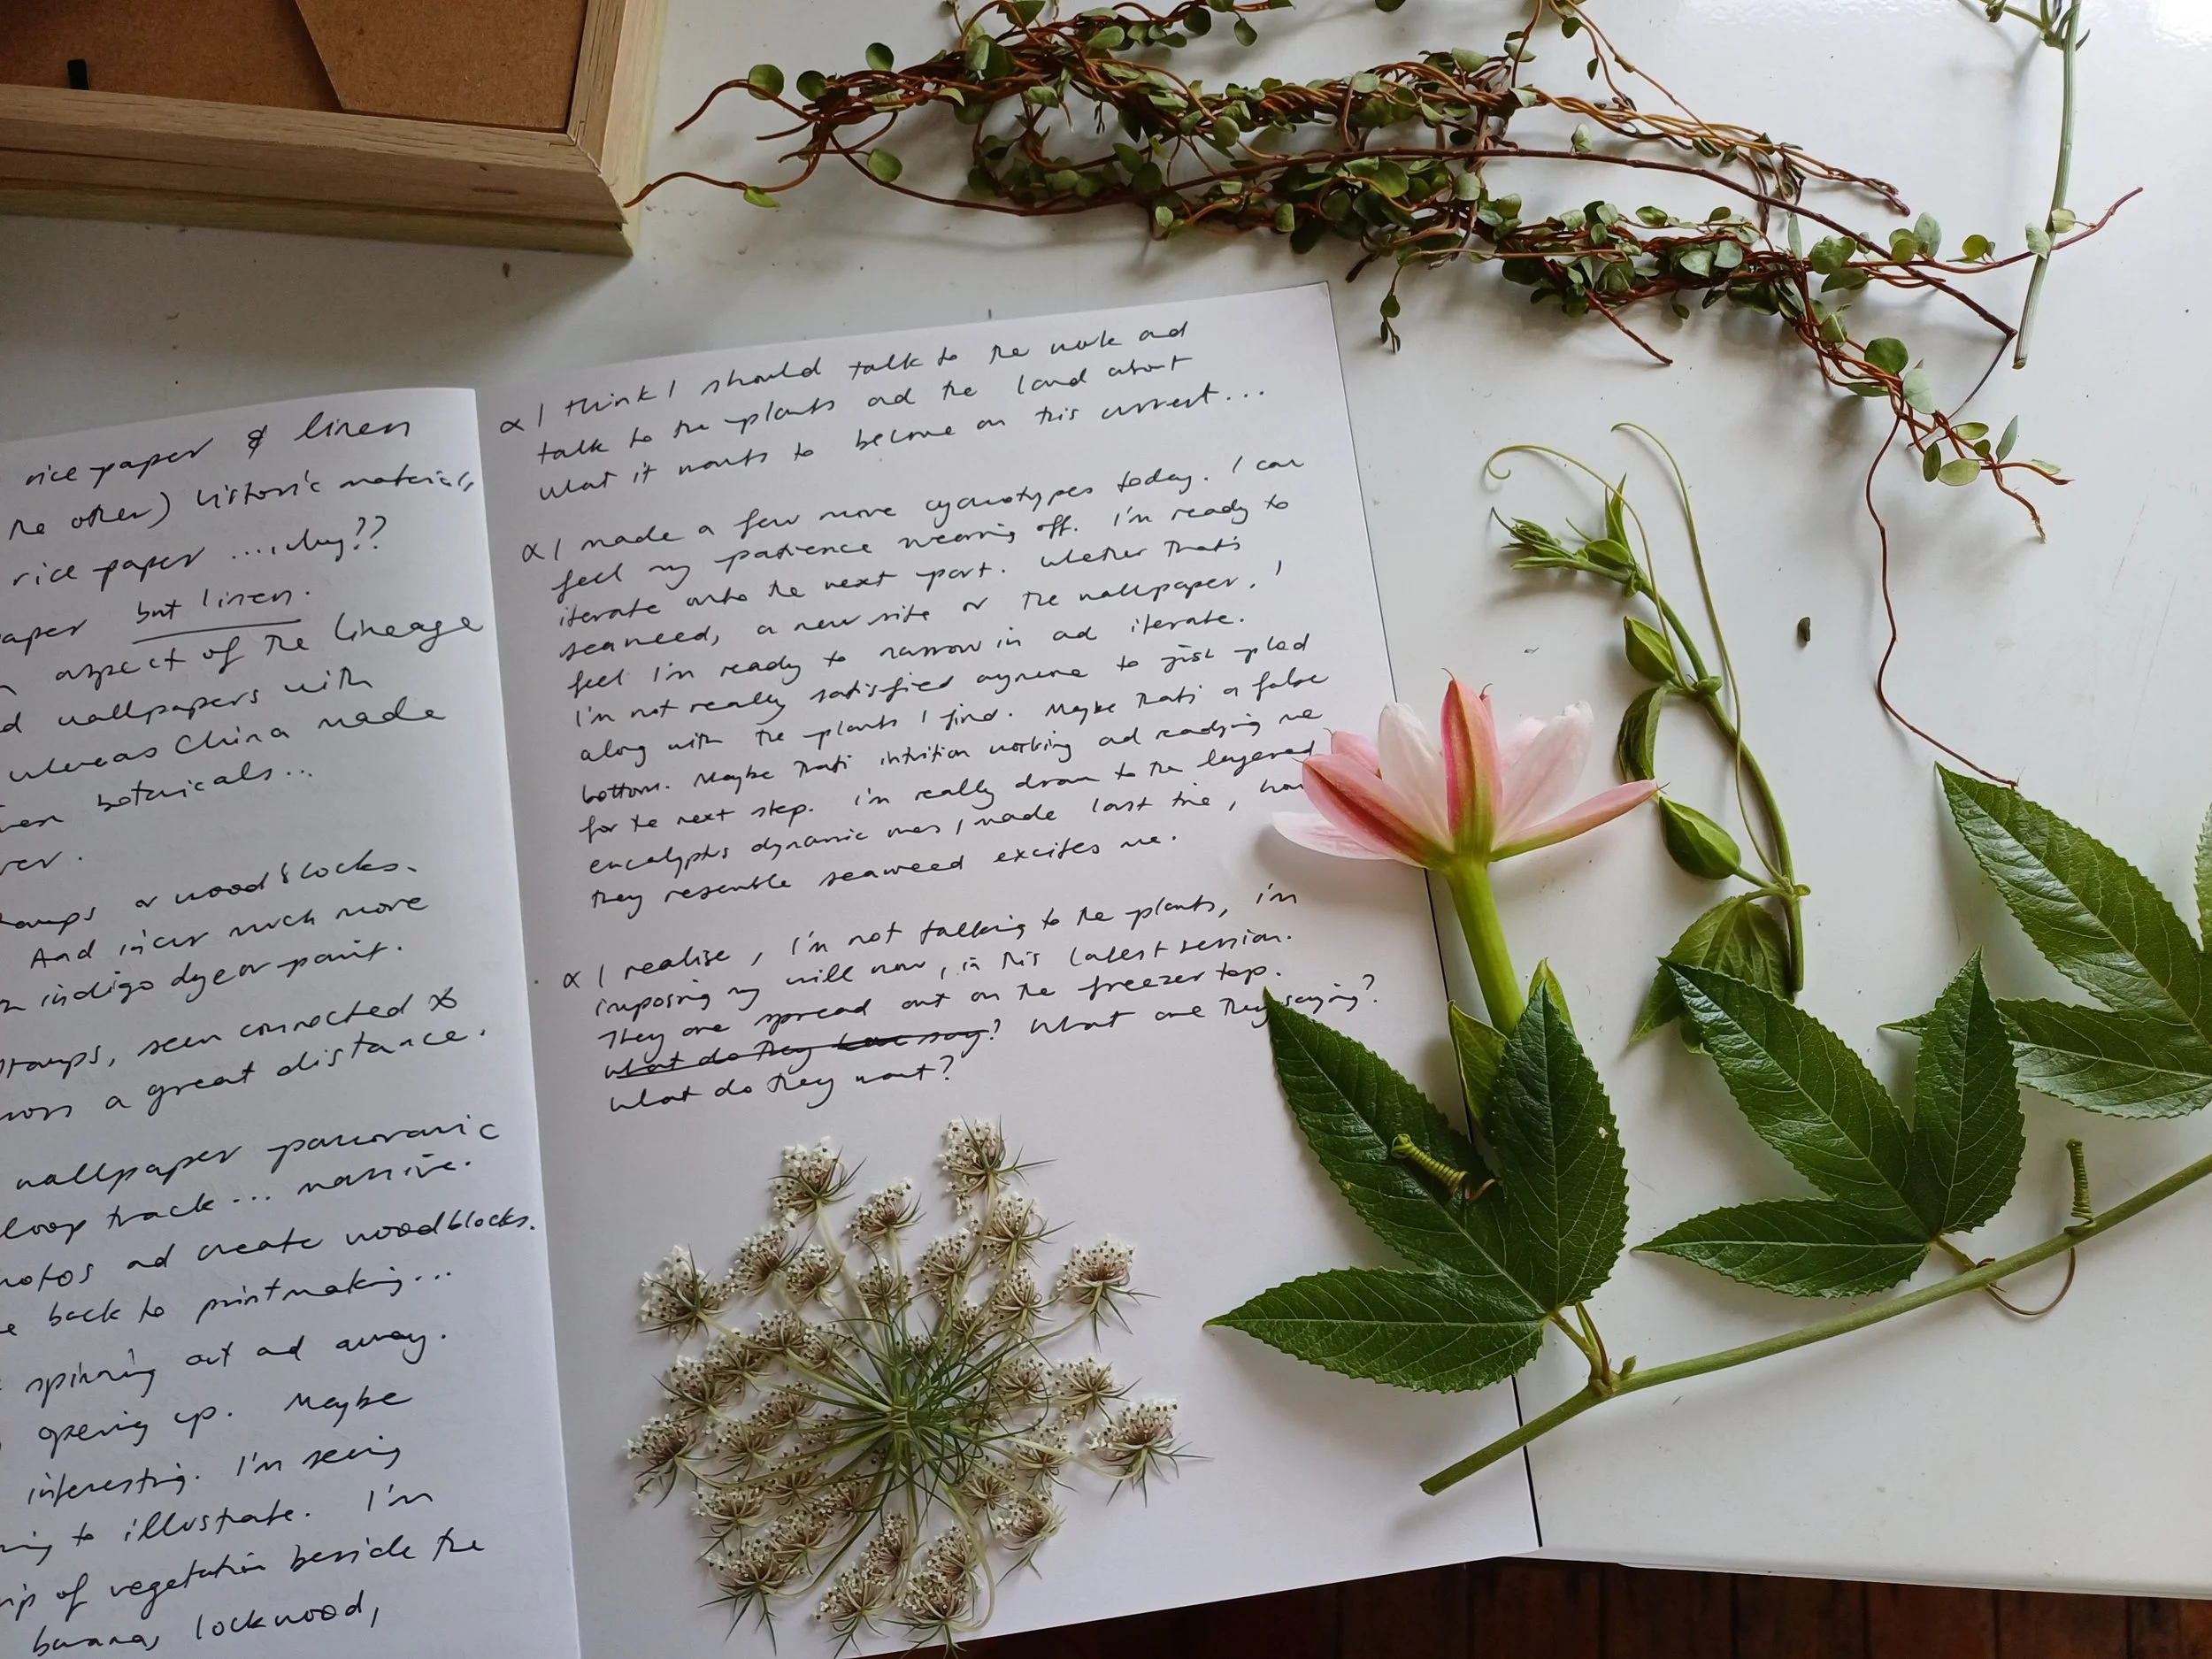 rice paper & linen
the other) historic materials
rice paper ....why??
paper but linen.
aspect of the lineage
wallpapers with
whereas China made
botanicals...
stamps or woodblocks.
And incur much more
indigo dye or paint.
stamps, seem connected to
a great distance.
wallpaper panoramic
loop track... massive.
photos and create woodblocks.
back to printmaking...
spinning out and away.
opening up. Maybe
interesting. I'm seeing
to illustrate. I'm
of vegetation beside the
banana, lockwood,
∝ I think I should talk to the work and
talk to the plants and the land about
what it wants to become on this current...
∝ I made a few more cyanotypes today. I can
feel my patience wearing off. I'm ready to
iterate onto the next part. Whether that's
seaweed, a new site or the wallpaper. I
feel I'm ready to narrow in and iterate.
I'm not really satisfied anymore to just plod
along with the plants I find. Maybe that's a false
bottom. Maybe that's intuition working and readying me
for the next step. I'm really drawn to the layered
eucalyptus dynamic ones I made last time, how
they resemble seaweed excites me.
∝ I realise, I'm not talking to the plants, I'm
imposing my will now, in this latest session.
They are spread out on the freezer top.
What do they say? What are they saying?
What do they want?